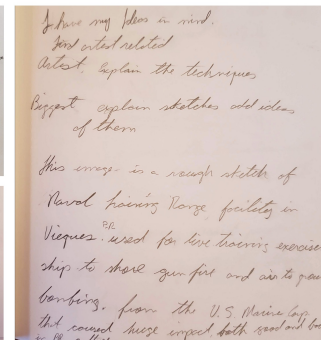 I have my Ideas in mind.
find artest related
Artist. Explain the techniques
Biggest explain sketches add ideas
of them
This image is a rough sketch of
Naval training Range facility in
Vieques P.R. used for live training exercise
ship to shore gun fire and air to groun
bombing. from the U.S. Marine Corp
that caused huge impact both good and ba